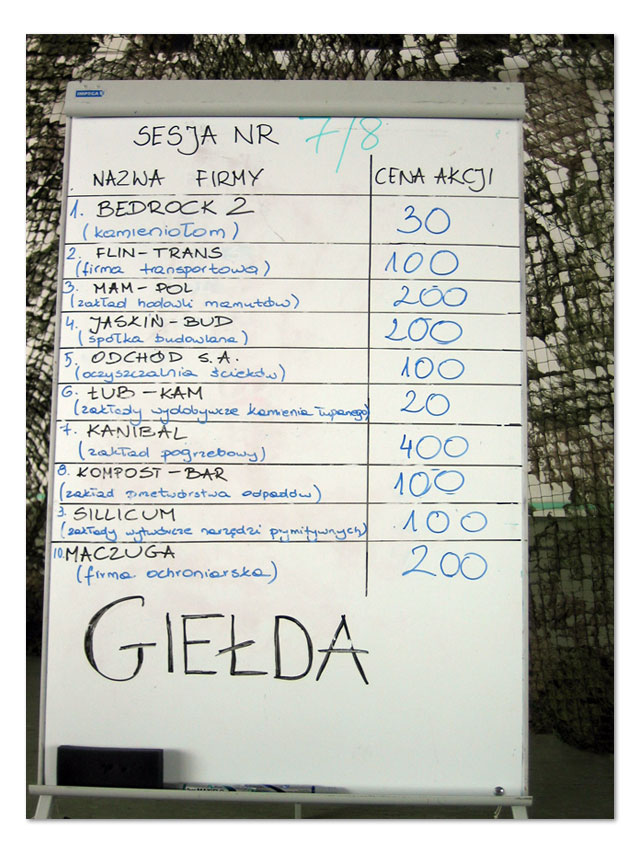 SESJA NR 7/8
NAZWA FIRMY CENA AKCJI
1. BEDROCK 2 30
(kamieniołom)
2. FLIN-TRANS 100
(firma transportowa)
3. MAM-POL 200
(zakład hodowli mamutów)
4. JASKIŃ-BUD 200
(spółka budowlana)
5. ODCHÓD S.A. 100
(oczyszczalnia ścieków)
6. ŁUB-KAM 20
(zakłady wydobywcze kamienia łupanego)
7. KANIBAL 400
(zakład pogrzebowy)
8. KOMPOST-BAR 100
(zakład przetwórstwa odpadów)
9. SILLICUM 100
(zakłady wytwórcze narzędzi prymitywnych)
10. MACZUGA 200
(firma ochroniarska)
GIEŁDA